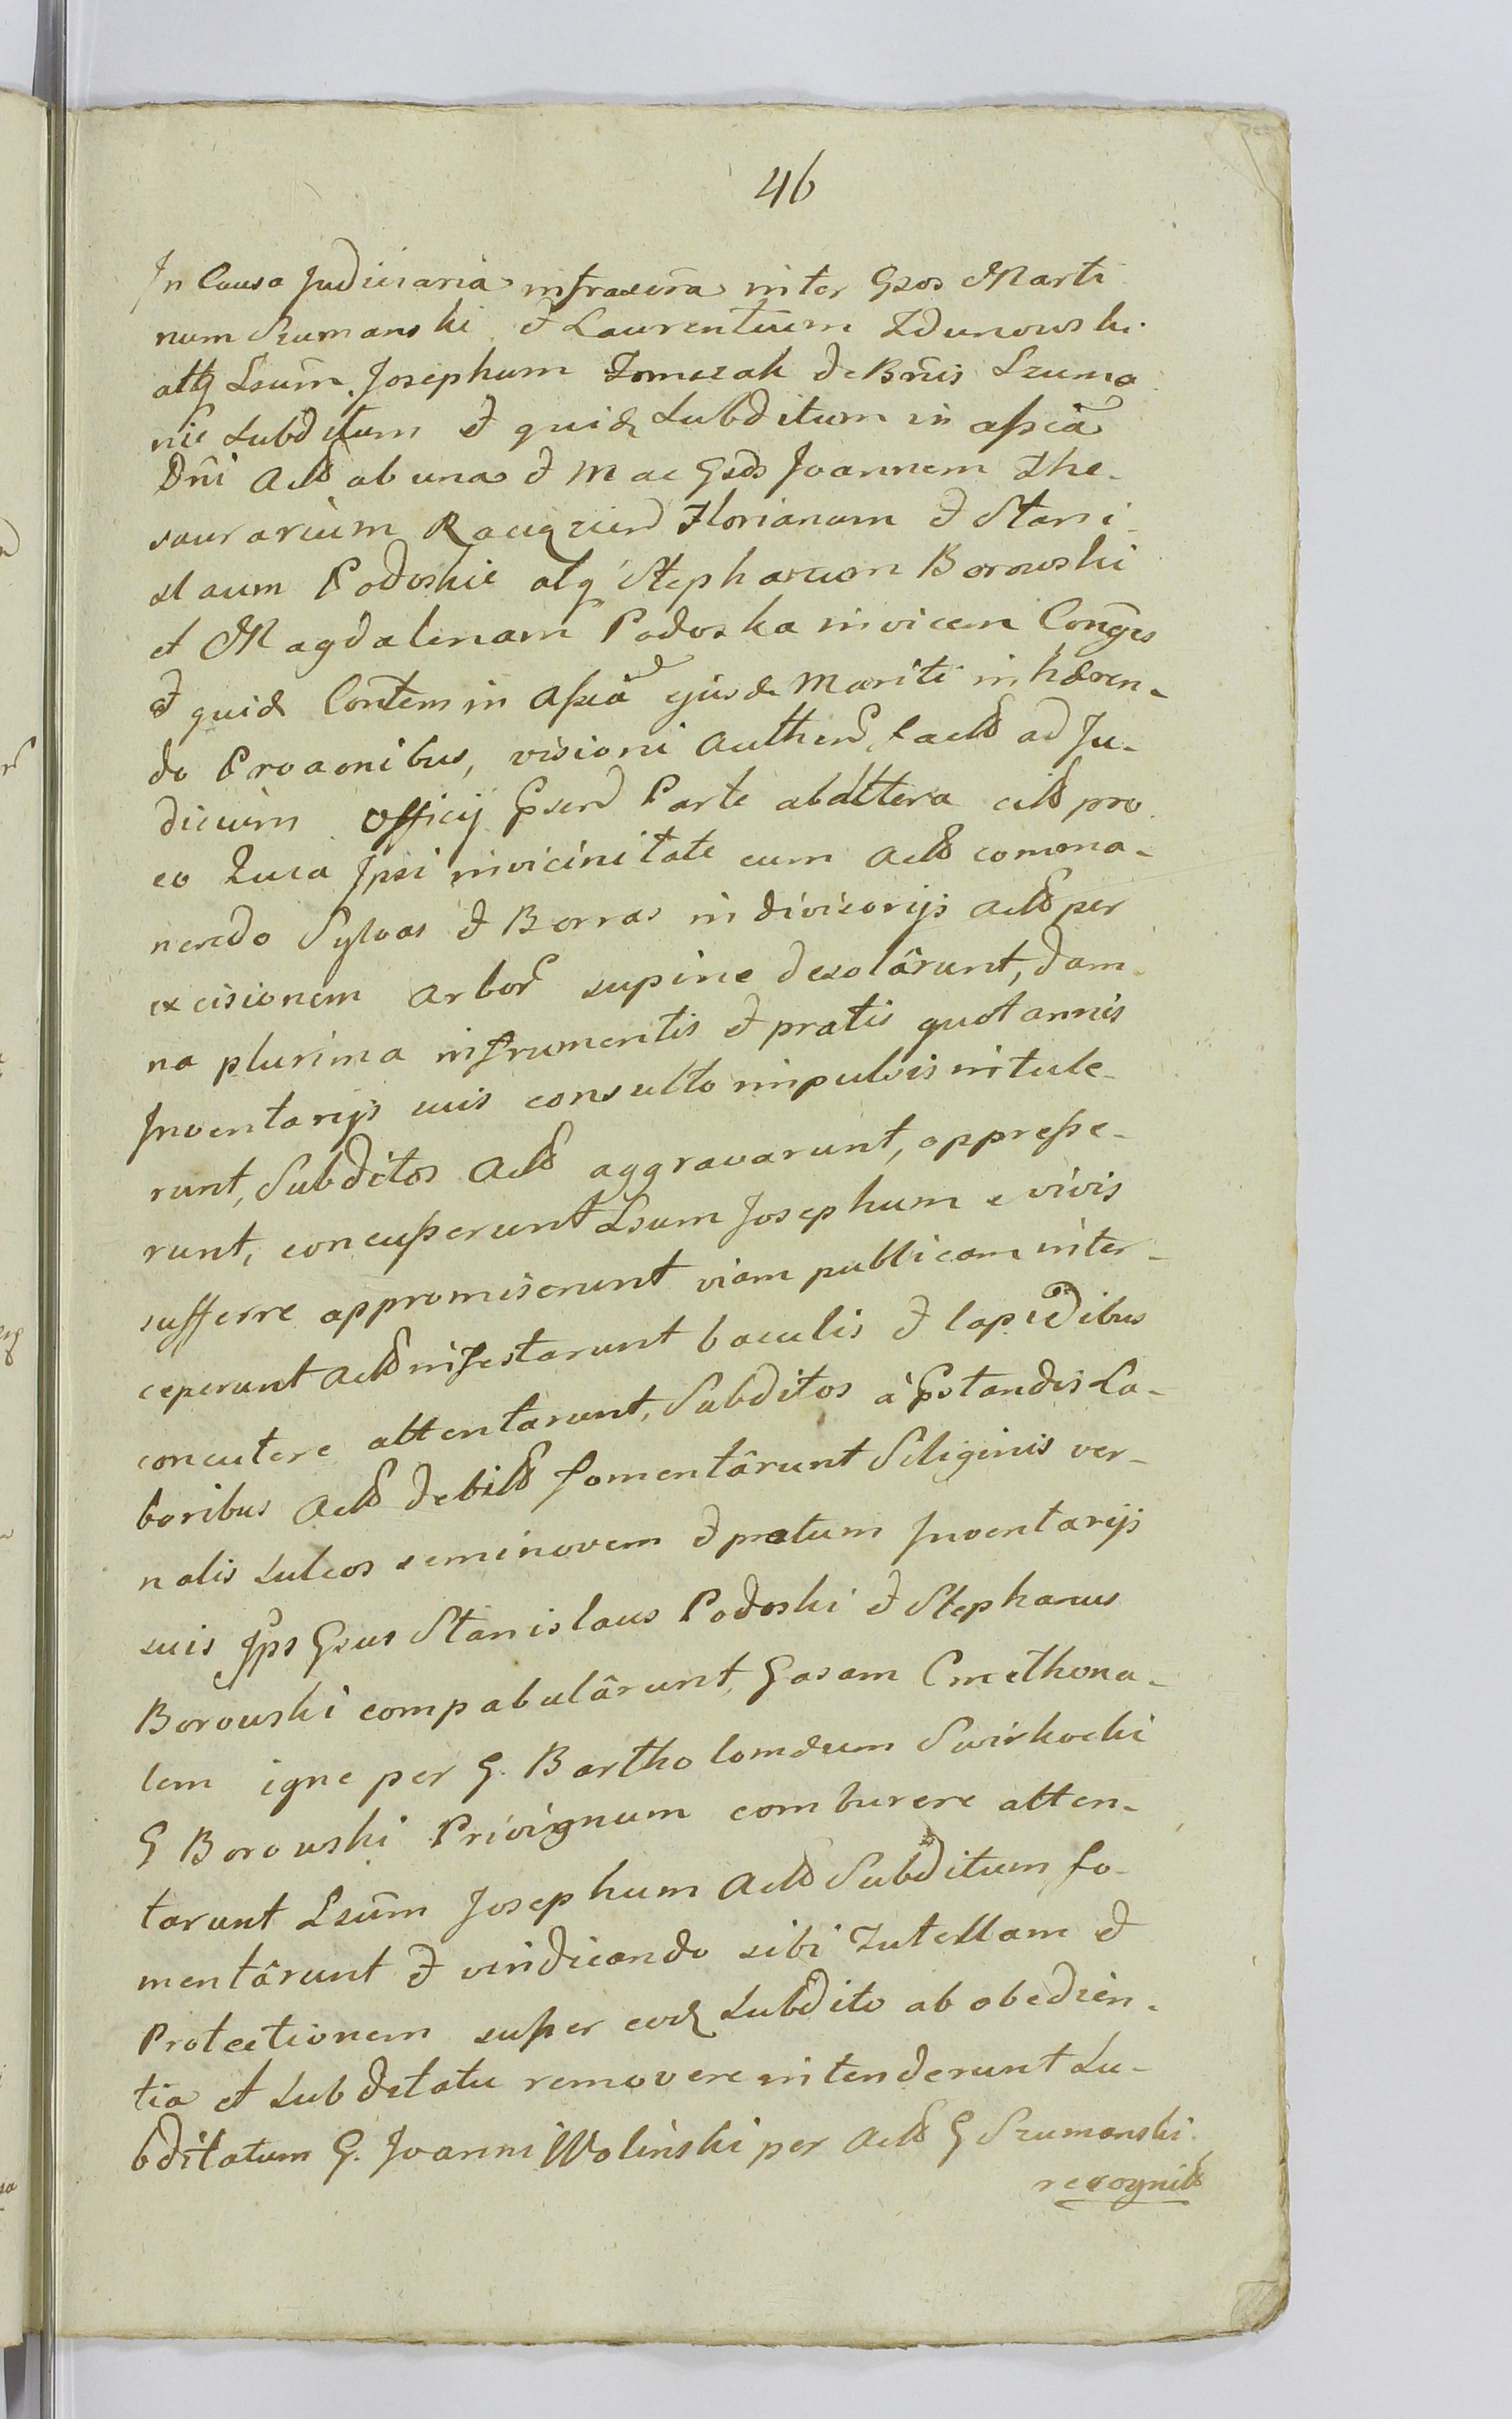 46
In Causa Judiciaria infrascra inter Gsos Marti
num Szumanski et Laurentium Zdunowski
atq Lsum Josephum Tomczak de Bnis Szuma
nie Subditum et quid Subditum in assia
Dni Actt ab una et M ac Gsos Joannem The-
saurarium Raciązien Florianum et Stani-
slaum Podoskie atq Stephanum Borowski
et Magdalenam Podoska invicem Conges
et quid Contem in assia ejusd Mariti inhæren-
do Proaonibus, visioni Authen factt ad Ju-
dicium Officij Psen Parte ab altera citt pro
eo Quia Ipsi in vicinitate cum Actt comma-
nendo Sylvas et Borras indivisorijs Actt per
excisionem arbor supine desolârunt, dam
na plurima in frumentis et pratis quotannis
Inventarijs suis consulto impulsis intule-
runt, Subditos Actt aggravarunt, oppresse-
runt, concusserunt Lsum Josephum e vivis
sufferre appromiserunt viam publicam inter-
ceperunt Actt infestarunt baculis et lapidibus
concutere attentarunt, Subditos à Pstandis La-
boribus Actt debitt fomentârunt Siliginis ver-
nalis sulcos semi novem et pratum Inventarijs
suis Ips Gsus Stanislaus Podoski et Stephanus
Borowski compabulârunt, Gasam Cmethona-
lem igne per G. Bartholomæum Swirkocki
G Borowski Privignum comburere atten-
tarunt Lsum Josephum Actt Subditum fo-
mentârunt et vindicando sibi Tutellam et
Protectionem super eod Subdito ab obedien-
tia et Subditatu removere intenderunt Su-
bditatum G. Joanni Wolinski per Actt G Szumanski
recognitt